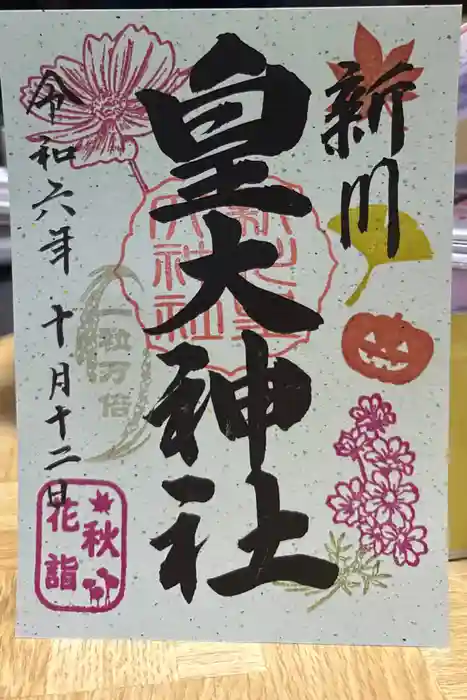 新川
皇大神社
令和六年十月十二日
一粒万倍
秋
花詣